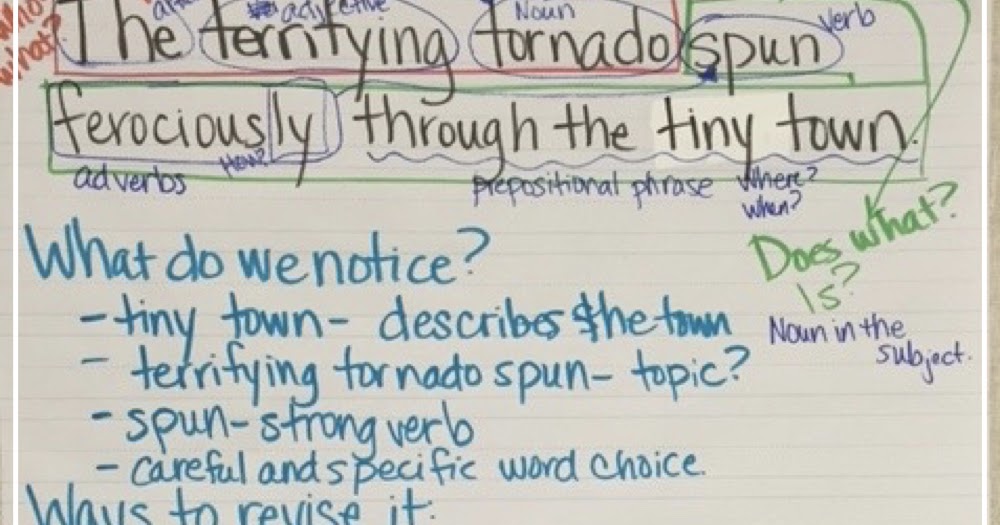 who?
what?
adjective
Noun
verb
The terrifying tornado spun
ferociously through the tiny town.
How?
adverbs
prepositional phrase
Where?
when?
Does what?
Is?
Noun in the
subject.
What do we notice?
- tiny town - describes the town
- terrifying tornado spun - topic?
- spun - strong verb
- careful and specific word choice.
Ways to revise it: